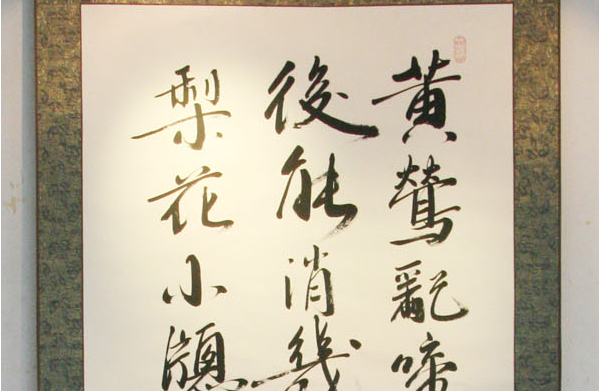 黄鶯亂啼
後能消幾
梨花小窻